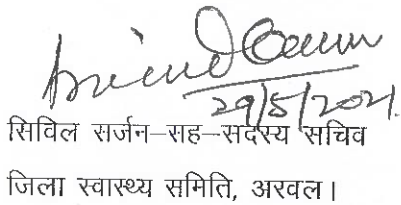 29/5/2021.
सिविल सर्जन–सह–सदस्य सचिव
जिला स्वास्थ्य समिति, अरवल।